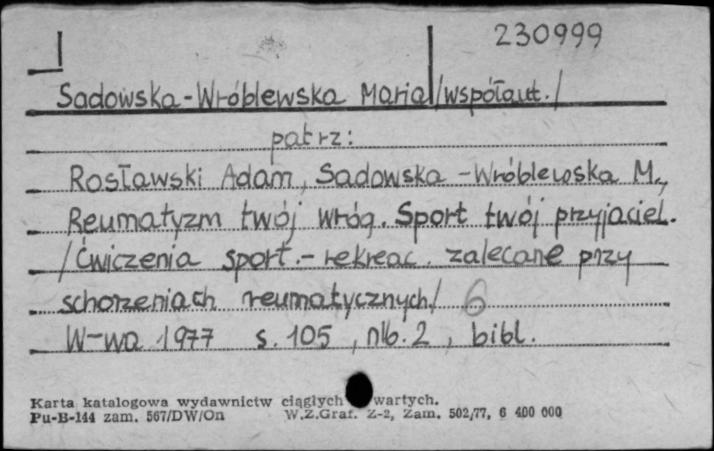 230999
Sadowska-Wróblewska Maria /współaut./
patrz:
Rosławski Adam, Sadowska-Wróblewska M.,
Reumatyzm twój wróg. Sport twój przyjaciel.
/Ćwiczenia sport.- rekreac. zalecane przy
schorzeniach reumatycznych/ 6
W-wa 1977 s. 105, nlb. 2, bibl.
Karta katalogowa wydawnictw ciągłych wartych.
Pu-B-144 zam. 567/DW/On W.Z.Graf. Z-2, Zam. 502/77, 6 400 000